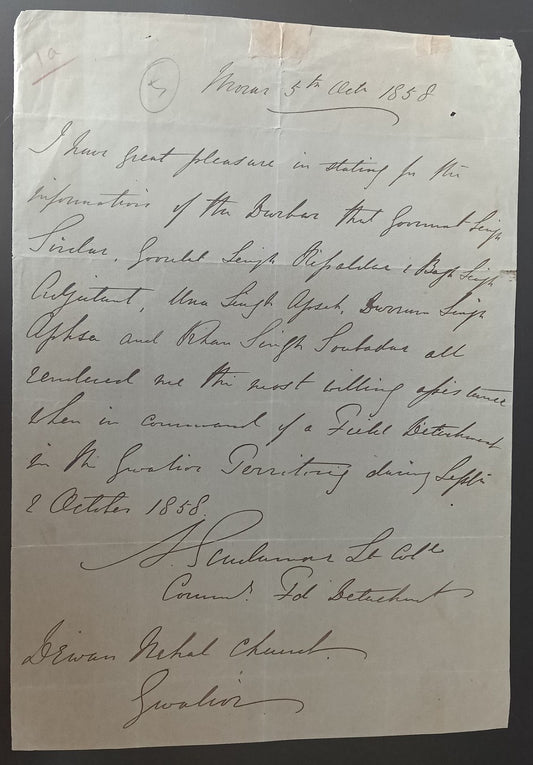 1a
Morar 5th Octr 1858
I have great pleasure in stating for the
information of the Durbar that Goormat Singh
Sirdar, Goordit Singh Rissaldar & Bagh Singh
Adjutant, Una Singh Apset, Durrum Singh
Aphsa and Khan Singh Soubadar all
rendered me the most willing assistance
when in command of a Field Detachment
in the Gwalior Territory during Septr
& October 1858.
A. Scudamore Lt Coll
Commd. Fd Detachment
Dewan Nehal Chund.
Gwalior